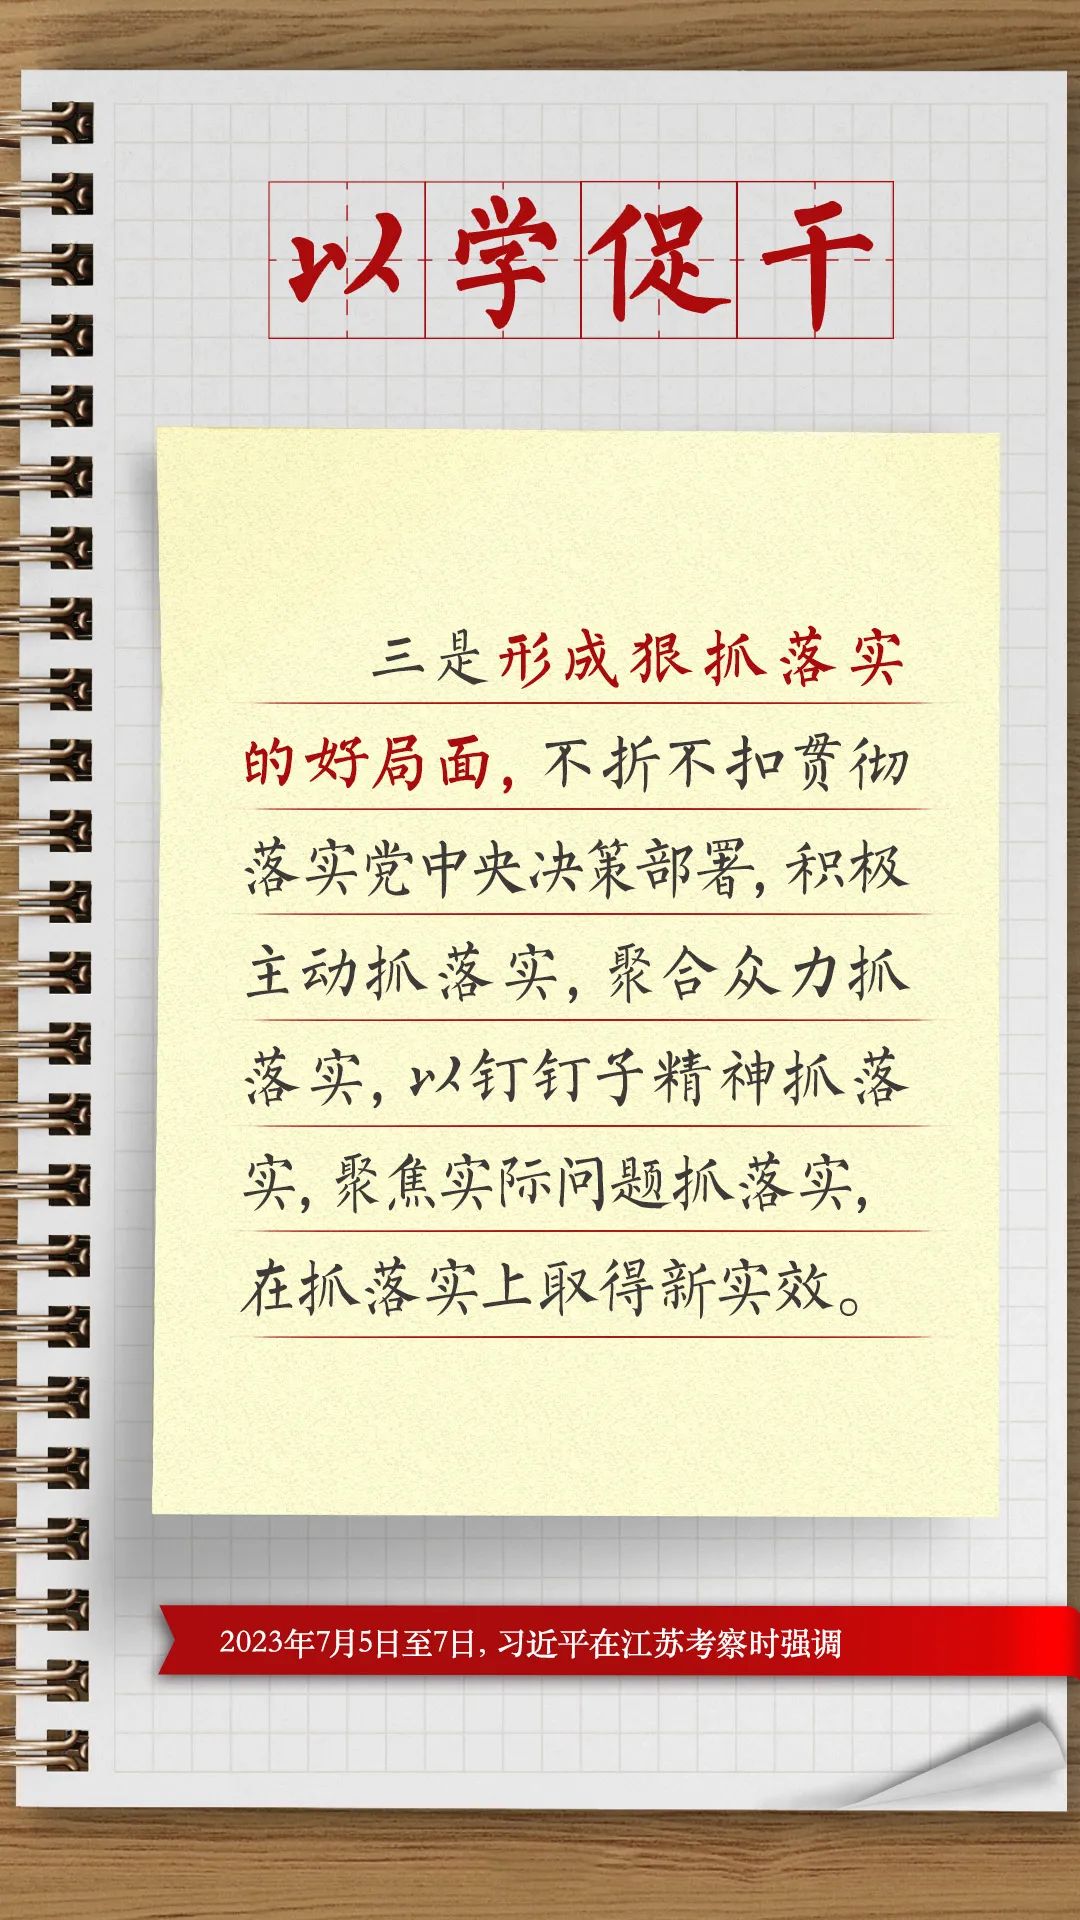 以学促干
三是形成狠抓落实
的好局面，不折不扣贯彻
落实党中央决策部署，积极
主动抓落实，聚合众力抓
落实，以钉钉子精神抓落
实，聚焦实际问题抓落实，
在抓落实上取得新实效。
2023年7月5日至7日，习近平在江苏考察时强调